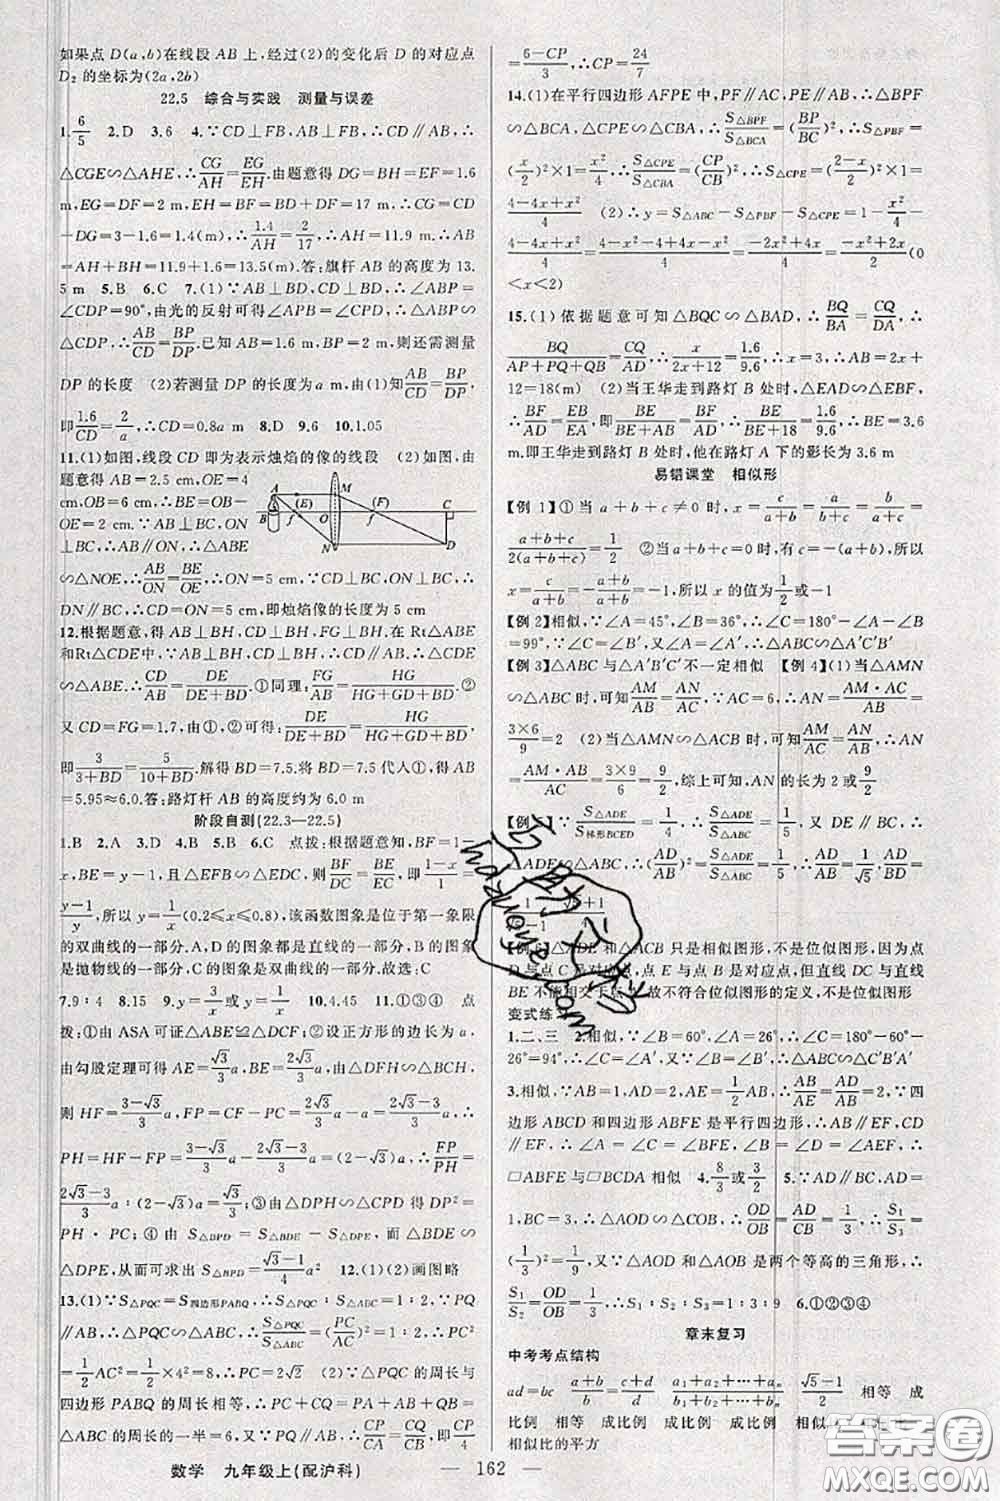 如果点 D(a,b)在线段 AB 上,经过(2)的变化后 D 的对应点
D₂ 的坐标为(2a,2b)
22.5 综合与实践 测量与误差
1. 6/5 2.D 3.6 4.∵CD⊥FB,AB⊥FB,∴CD∥AB,∴
△CGE∽△AHE,∴CG/AH=EG/EH.由题意得 DG=BH=EF=1.6
m,EG=DF=2 m,EH=BF=BD+DF=17 m,∴CG=CD
-DG=3-1.6=1.4(m),∴1.4/AH=2/17,∴AH=11.9 m.∴AB
=AH+BH=11.9+1.6=13.5(m).答:旗杆 AB 的高度为 13.
5 m 5.B 6.C 7.(1)∵AB⊥BD,CD⊥BD,∴∠ABP=
∠CDP=90°,由光的反射可得∠APB=∠CPD,∴△ABP∽
△CDP,∴AB/CD=BP/DP.已知 AB=1.6 m,BP=2 m,则还需测量
DP 的长度 (2)若测量 DP 的长度为 a m,由(1)知AB/CD=BP/DP,
即1.6/CD=2/a,∴CD=0.8a m 8.D 9.6 10.1.05
11.(1)如图,线段 CD 即为表示烛焰的像的线段 (2)如图,由
题意得 AB=2.5 cm,OE=4
cm,OB=6 cm,∴BE=OB-
OE=2 cm.∵AB⊥BC,ON
⊥BC,∴AB∥ON,∴△ABE
A M (E) (F) C B f O f N D
∽△NOE,∴AB/ON=BE/OE,∴ON=5 cm,∵CD⊥BC,ON⊥BC,
DN∥BC,∴CD=ON=5 cm,即烛焰像的长度为 5 cm
12.根据题意,得 AB⊥BH,CD⊥BH,FG⊥BH.在 Rt△ABE
和Rt△CDE中,∵AB⊥BH,CD⊥BH,∴CD∥AB,∴△CDE
∽△ABE.∴CD/AB=DE/(DE+BD).①同理:FG/AB=HG/(HG+GD+BD).②
又 CD=FG=1.7,由①,②可得:DE/(DE+BD)=HG/(HG+GD+BD),
即3/(3+BD)=5/(10+BD).解得 BD=7.5,将 BD=7.5代人①,得
AB=5.95≈6.0.答:路灯杆 AB 的高度约为 6.0 m
阶段自测(22.3—22.5)
1.B 2.A 3.D 4.B 5.B 6.C 点拨:根据题意知,BF=1-
x,BE=y-1,且△EFB∽△EDC,则BF/DC=BE/EC,即(1-x)/1=
(y-1)/y,所以 y=1/x(0.2≤x≤0.8),该函数图象是位于第一象限
的双曲线的一部分,A,D 的图象都是直线的一部分,B 的图象
是抛物线的一部分,C 的图象是双曲线的一部分,故选:C
7.9∶4 8.15 9.y=3/x或 y=1/x 10.4.45 11.①③④ 点
拨:①由 ASA 可证△ABE≌△DCF;②设正方形的边长为 a,
由勾股定理可得 AE=√3/3 a,由题易得△DPH∽△BCH,
则 HF=(3-√3)/3 a,FP=CF-PC=2√3/3 a-a=(2√3-3)/3 a,∴
PH=HF-FP=(3-√3)/3 a-(2√3-3)/3 a=(2-√3)a,∴FP/PH=
(2√3-3)/3 a∶(2-√3)a=√3/3;③由△DPH∽△CPD 得 DP²=
PH·PC;④由 S△DPD=S△DPH-S△DPE,而△BDH∽
△DPE,从而可求出 S△BPD=(√3-1)/4 a² 12.(1)(2)画图略
13.(1)∵S△PQC=S四边形PABQ,∴S△PQC∶S△ABC=1∶2,∵PQ
∥AB,∴△PQC∽△ABC,∴S△PQC/S△ABC=(PC/AC)²=1∶2,∴PC²
=1/2AC²=1/2×4²=8,∴PC=2√2 (2)∵△PQC 的周长与
四边形 PABQ 的周长相等,∴PC+CQ=PA+AB+QB=
△ABC 的周长的一半=6,又∵PQ∥AB,∴CP/CA=CQ/CB,即CP/4=
(6-CP)/3,∴CP=24/7
14.(1)在平行四边形 AFPE 中,PF∥AC,PE∥AB,∴△BPF
∽△BCA,△CPE∽△CBA,∴S△BPF/S△BCA=(BP/BC)²,∴S△PBF=
(x/2)²×1=x²/4,∴S△CPE/S△CBA=(CP/CB)²,∴S△CPE=((2-x)/2)²×1=
(4-4x+x²)/4 (2)∴y=S△ABC-S△PBF-S△CPE=1-x²/4-
(4-4x+x²)/4=(4-x²-4+4x-x²)/4=(-2x²+4x)/4=(-x²+2x)/2(0
<x<2)
15.(1)依据题意可知△BQC∽△BAD,∴BQ/BA=CQ/DA,∴
BQ/(AP+PQ+QB)=CQ/AD,∴x/(2x+12)=1.6/9.6,∴x=3,∴AB=2x+
12=18(m) (2)当王华走到路灯 B 处时,△EAD∽△EBF,
∴BF/AD=EB/EA,即BE/(BE+AB)=BF/AD,∴BE/(BE+18)=1.6/9.6,∴BE=3.6
m,即王华走到路灯 B 处时,他在路灯 A 下的影长为 3.6 m
易错课堂 相似形
【例 1】①当 a+b+c≠0 时,x=c/(a+b)=a/(b+c)=b/(a+c)=
(a+b+c)/2(a+b+c)=1/2 ②当 a+b+c=0 时,有 c=-(a+b),所以
x=c/(a+b)=-(a+b)/(a+b)=-1,所以 x 的值为1/2或-1
【例 2】相似,∵∠A=45°,∠B=36°,∴∠C=180°-∠A-∠B
=99°,∵∠C=∠B′,又∠A=∠A′,∴△ABC∽△A′C′B′
【例 3】△ABC 与△A′B′C′不一定相似 【例 4】(1)当△AMN
∽△ABC 时,可知AM/AB=AN/AC,∵AC=6,∴AN=AM·AC/AB=
3×6/9=2 (2)当△AMN∽△ACB 时,可知AM/AC=AN/AB,∴AN
=AM·AB/AC=3×9/6=9/2,综上可知,AN 的长为 2 或9/2
S△ADE/S梯形BCED=1/4,∴S△ADE/S△ABC=1/5,又 DE∥BC,∴
△ADE∽△ABC,∴(AD/AB)²=S△ADE/S△ABC=1/5,∴AD/AB=1/√5,∴
△ADE 和△ACB 只是相似图形,不是位似图形,因为点
D 与点 C 是对应点,点 E 与点 B 是对应点,但直线 DC 与直线
BE 不能相交于点,故不符合位似图形的定义,不是位似图形
变式练习
1.二、三 2.相似,∵∠B=60°,∠A=26°,∴∠C=180°-60°-
26°=94°,∴∠C=∠A′,又∵∠B=∠B′,∴△ABC∽△C′B′A′
3.相似,∵AB=1,AD=2,AE=1/2,∴AE/AB=AB/AD=1/2,∵四
边形 ABCD 和四边形 ABFE 是平行四边形,∴AB∥CD
∥EF,∴∠A=∠C=∠BFE,∠ABF=∠D=∠AEF,∴
▱ABFE 与▱BCDA 相似 4. 8/3或3/2 5.∵AD∥BC,AD=
1,BC=3,∴△AOD∽△COB,∴OD/OB=AD/CB=1/3,∴S₁/S₃=
(1/3)²=1/9,又∵△AOD 和△AOB 是两个等高的三角形,∴
S₁/S₂=OD/OB=1/3,∴S₁∶S₂∶S₃=1∶3∶9 6.①②③④
章末复习
中考考点结构
ad=bc (a+b)/b=(c+d)/d (a₁+a₂+…+aₙ)/(b₁+b₂+…+bₙ) (√5-1)/2 相等 成
比例 相等 成比例 成比例 成比例 成比例 相似比
相似比的平方
数学 九年级上(配沪科)
— 162 —
答案圈
MXQE.COM